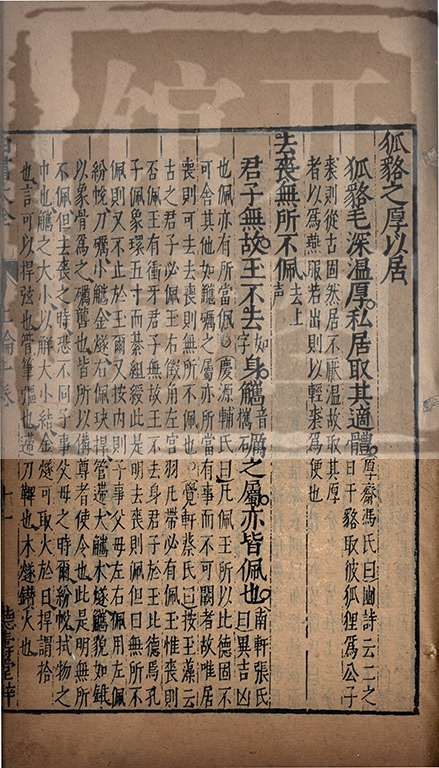 狐貉之厚以居
狐貉毛深溫厚。私居取其適體。厚齋馮氏曰豳詩云二之
日于貉取彼狐狸為公子
裘則從古固然居不厭溫故取其厚
者以為燕服若出則以輕裘為便也
去喪無所不佩去上聲
君子無故玉不去身觿礪之屬亦皆佩也南軒張氏
曰異吉凶
也佩亦有所當佩○慶源輔氏曰凡佩玉所以比德固不
可舍其他如觿礪之屬亦所當有事而不可闕者故唯居
喪則可去去喪則無所不佩也○覺軒蔡氏曰按玉藻云
古之君子必佩玉右徵角左宮羽凡帶必有佩玉惟喪則
否佩玉有衝牙君子無故玉不去身君子於玉比德焉孔
子佩象環五寸而綦組綬此是明去喪則佩但曰無所不
佩則又不止於玉爾又按內則子事父母左右佩用左佩
紛帨刀礪小觿金燧右佩玦捍管遰大觿木燧觿貌如錐
以象骨為之礪礱也皆所以備尊者使令也此是明無所
不佩但去喪之時恐不同子事父母之時爾紛帨拭物之
巾也觿之大小以解大小結金燧可取火於日捍謂拾
也言可以捍弦也管筆彄也遰刀鞞也木燧鑽火也
四書大全 上論十卷 十一 德壽堂梓